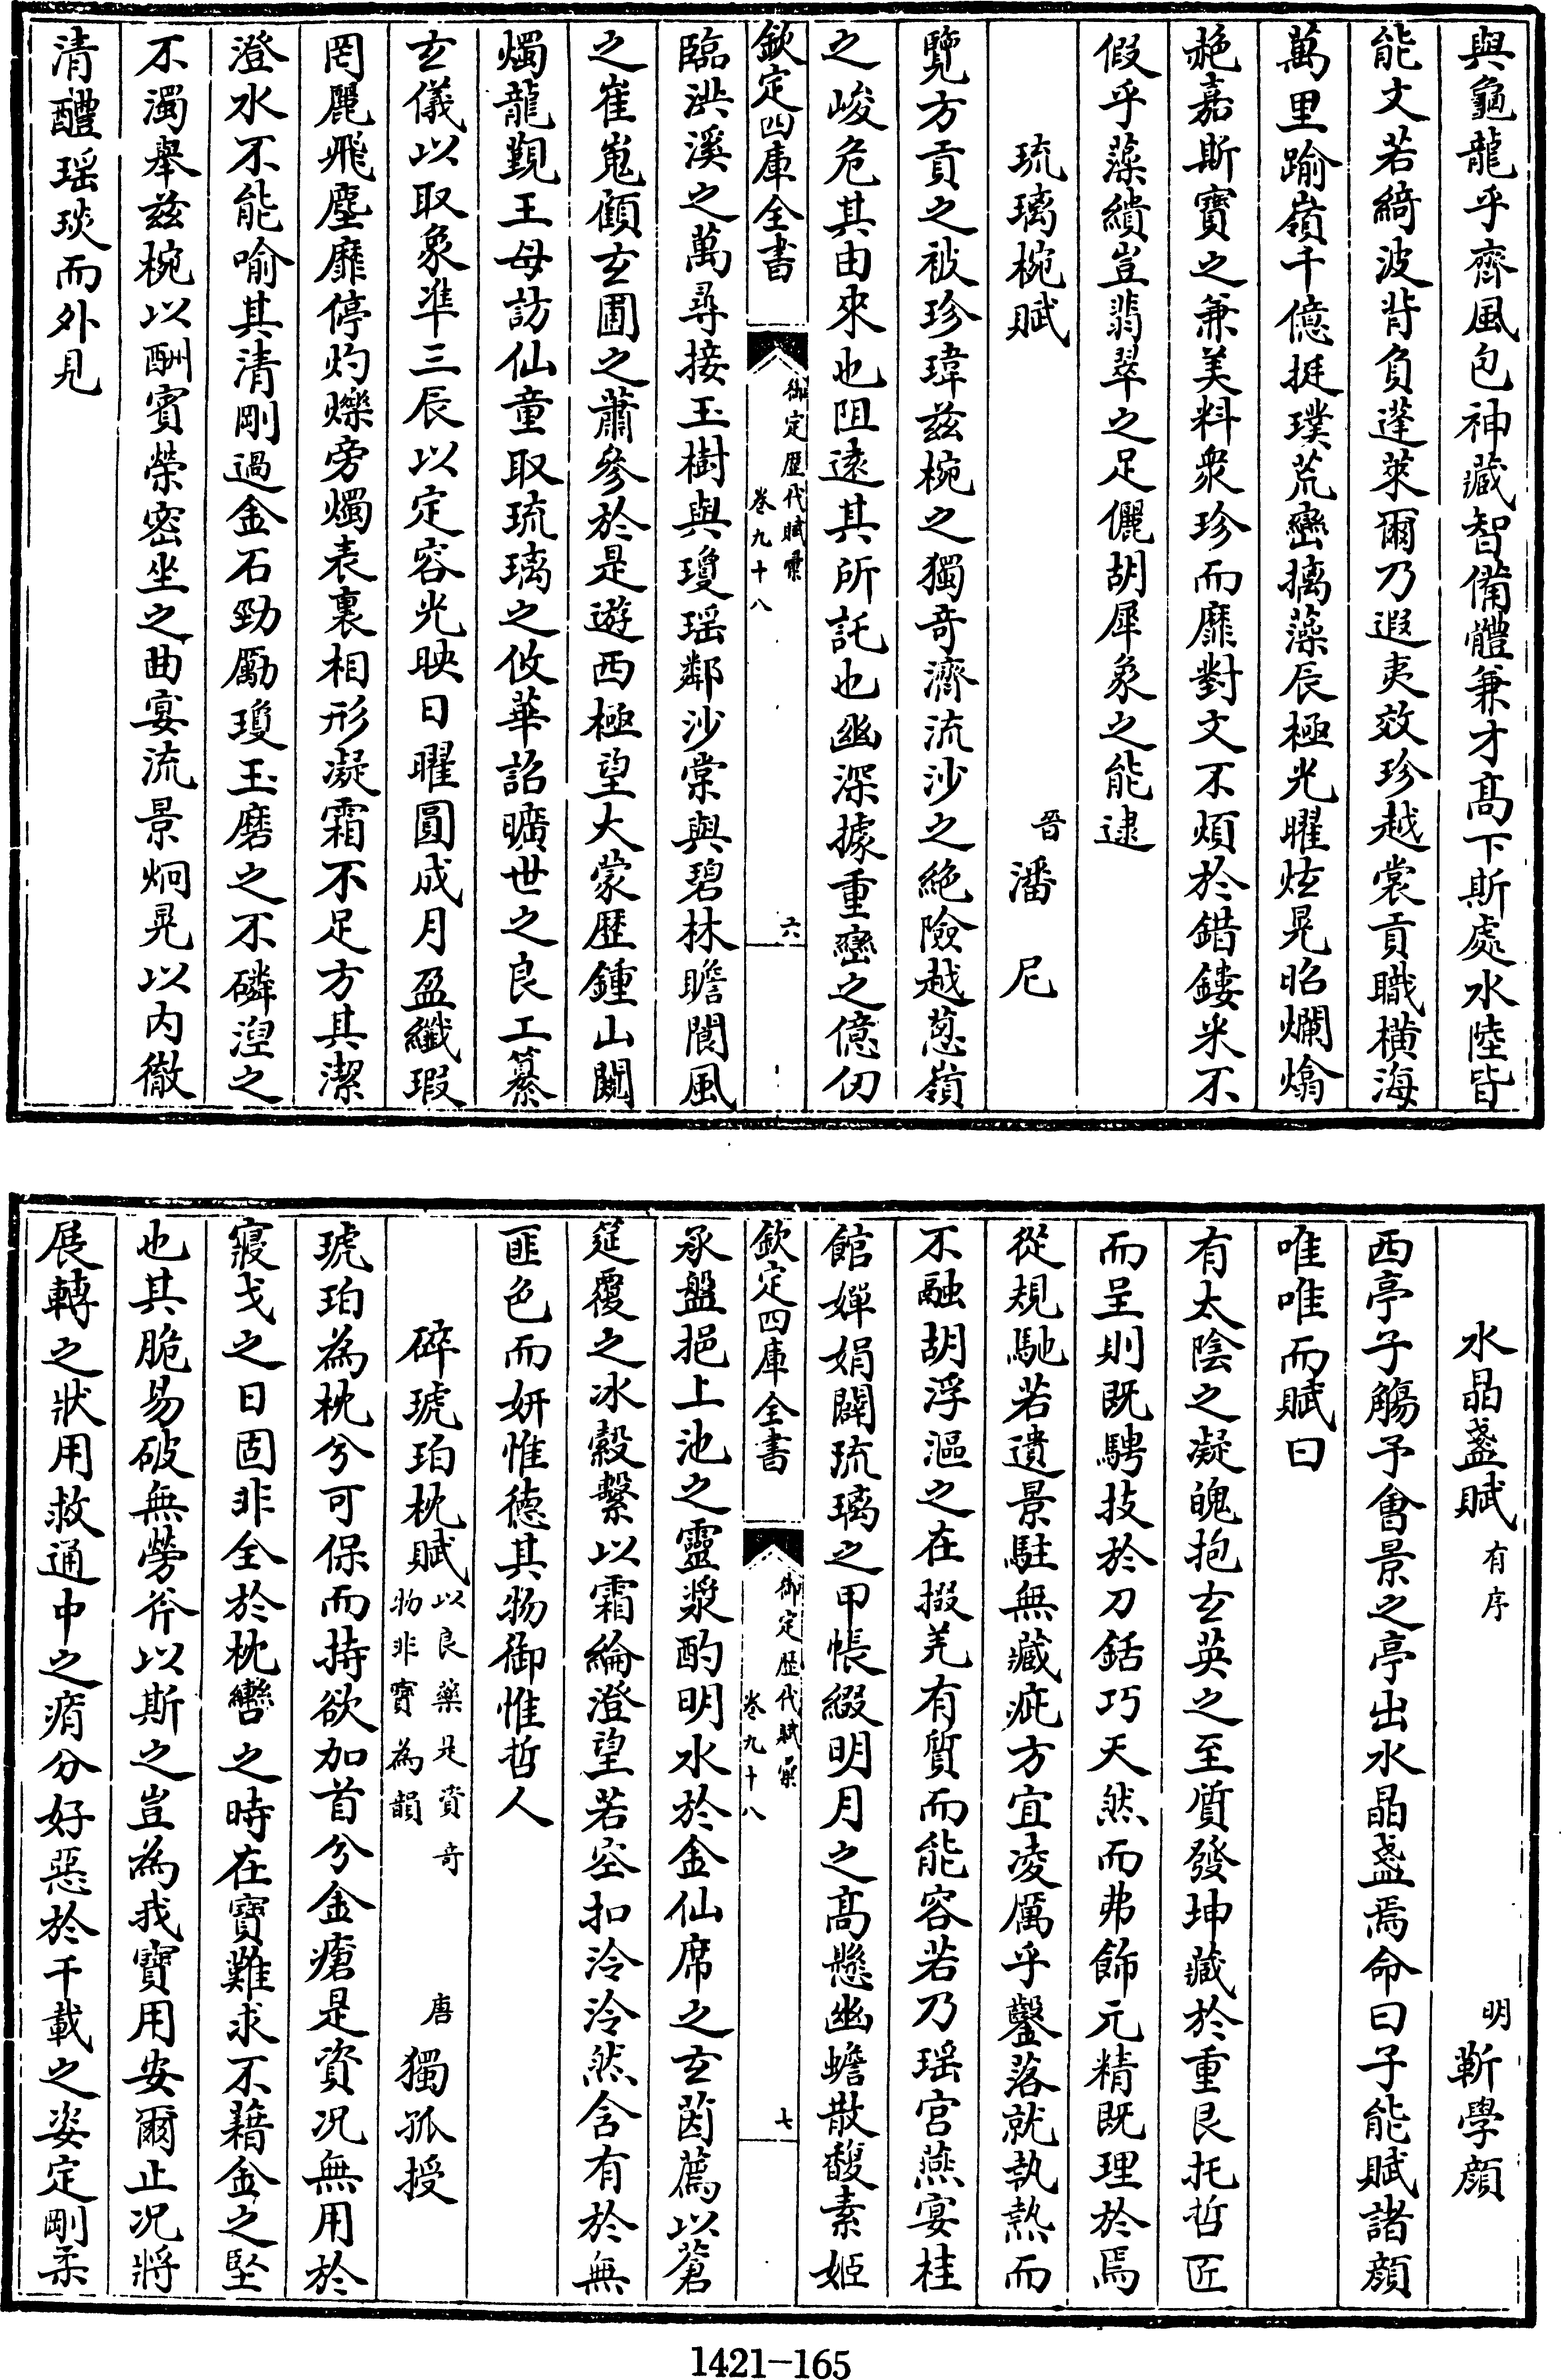 與龜龍乎齊風包神藏智備體兼才高下斯處水陸皆
能文若綺波背負蓬萊爾乃遐夷效珍越裳貢職橫海
萬里踰嶺千億挺璞荒巒摛藻辰極光曜炫晃昭爛熻
赩嘉斯寶之兼美料衆珍而靡對文不煩於錯鏤采不
假乎藻繢豈翡翠之足儷胡犀象之能逮
琉璃椀賦 晉 潘尼
覽方貢之彼珍瑋兹椀之獨奇濟流沙之絶險越葱嶺
之峻危其由來也阻逺其所託也幽深據重巒之億仞
欽定四庫全書 御定歴代賦彚 卷九十八 六
臨洪溪之萬尋接玉樹與瓊瑶鄰沙棠與碧林瞻閬風
之崔嵬顧玄圃之蕭參於是遊西極望大蒙歴鍾山闚
燭龍觀王母訪仙童取琉璃之攸華詔曠世之良工纂
玄儀以取象凖三辰以定容光映日曜圓成月盈纖瑕
罔麗飛塵靡停灼爍旁燭表裏相形凝霜不足方其潔
澄水不能喻其清剛過金石勁勵瓊玉磨之不磷湼之
不濁舉兹椀以酬賓榮密坐之曲宴流景炯晃以内徹
清醴瑶琰而外見
水晶盞賦 有序 明 靳學顔
西亭子觴予會景之亭出水晶盞焉命曰子能賦諸顔
唯唯而賦曰
有太陰之凝魄抱玄英之至質發坤藏於重艮托哲匠
而呈則既騁技於刀銛巧天然而弗飾元精既理於焉
從規馳若遺景駐無藏疵方宜凌厲乎鑿落就執熱而
不融胡浮漚之在掇羌有質而能容若乃瑶宫燕宴桂
館嬋娟闢琉璃之甲帳綴明月之高懸幽蟾散馥素姬
欽定四庫全書 御定歴代賦彚 卷九十八 七
承盤挹上池之靈漿酌明水於金仙席之玄茵薦以蒼
筵覆之冰縠繫以霜綸澄望若空扣泠泠然含有於無
匪色而妍惟德其物御惟哲人
碎琥珀枕賦 以良藥是資奇物非寶為韻 唐 獨孤授
琥珀為枕兮可保而持欲加首兮金瘡是資况無用於
寢戈之日固非全於枕轡之時在寶難求不藉金之堅
也其脆易破無勞斧以斯之豈為我寶用安爾止况將
展轉之狀用救通中之痏分好惡於千載之姿定剛柔
1421-165